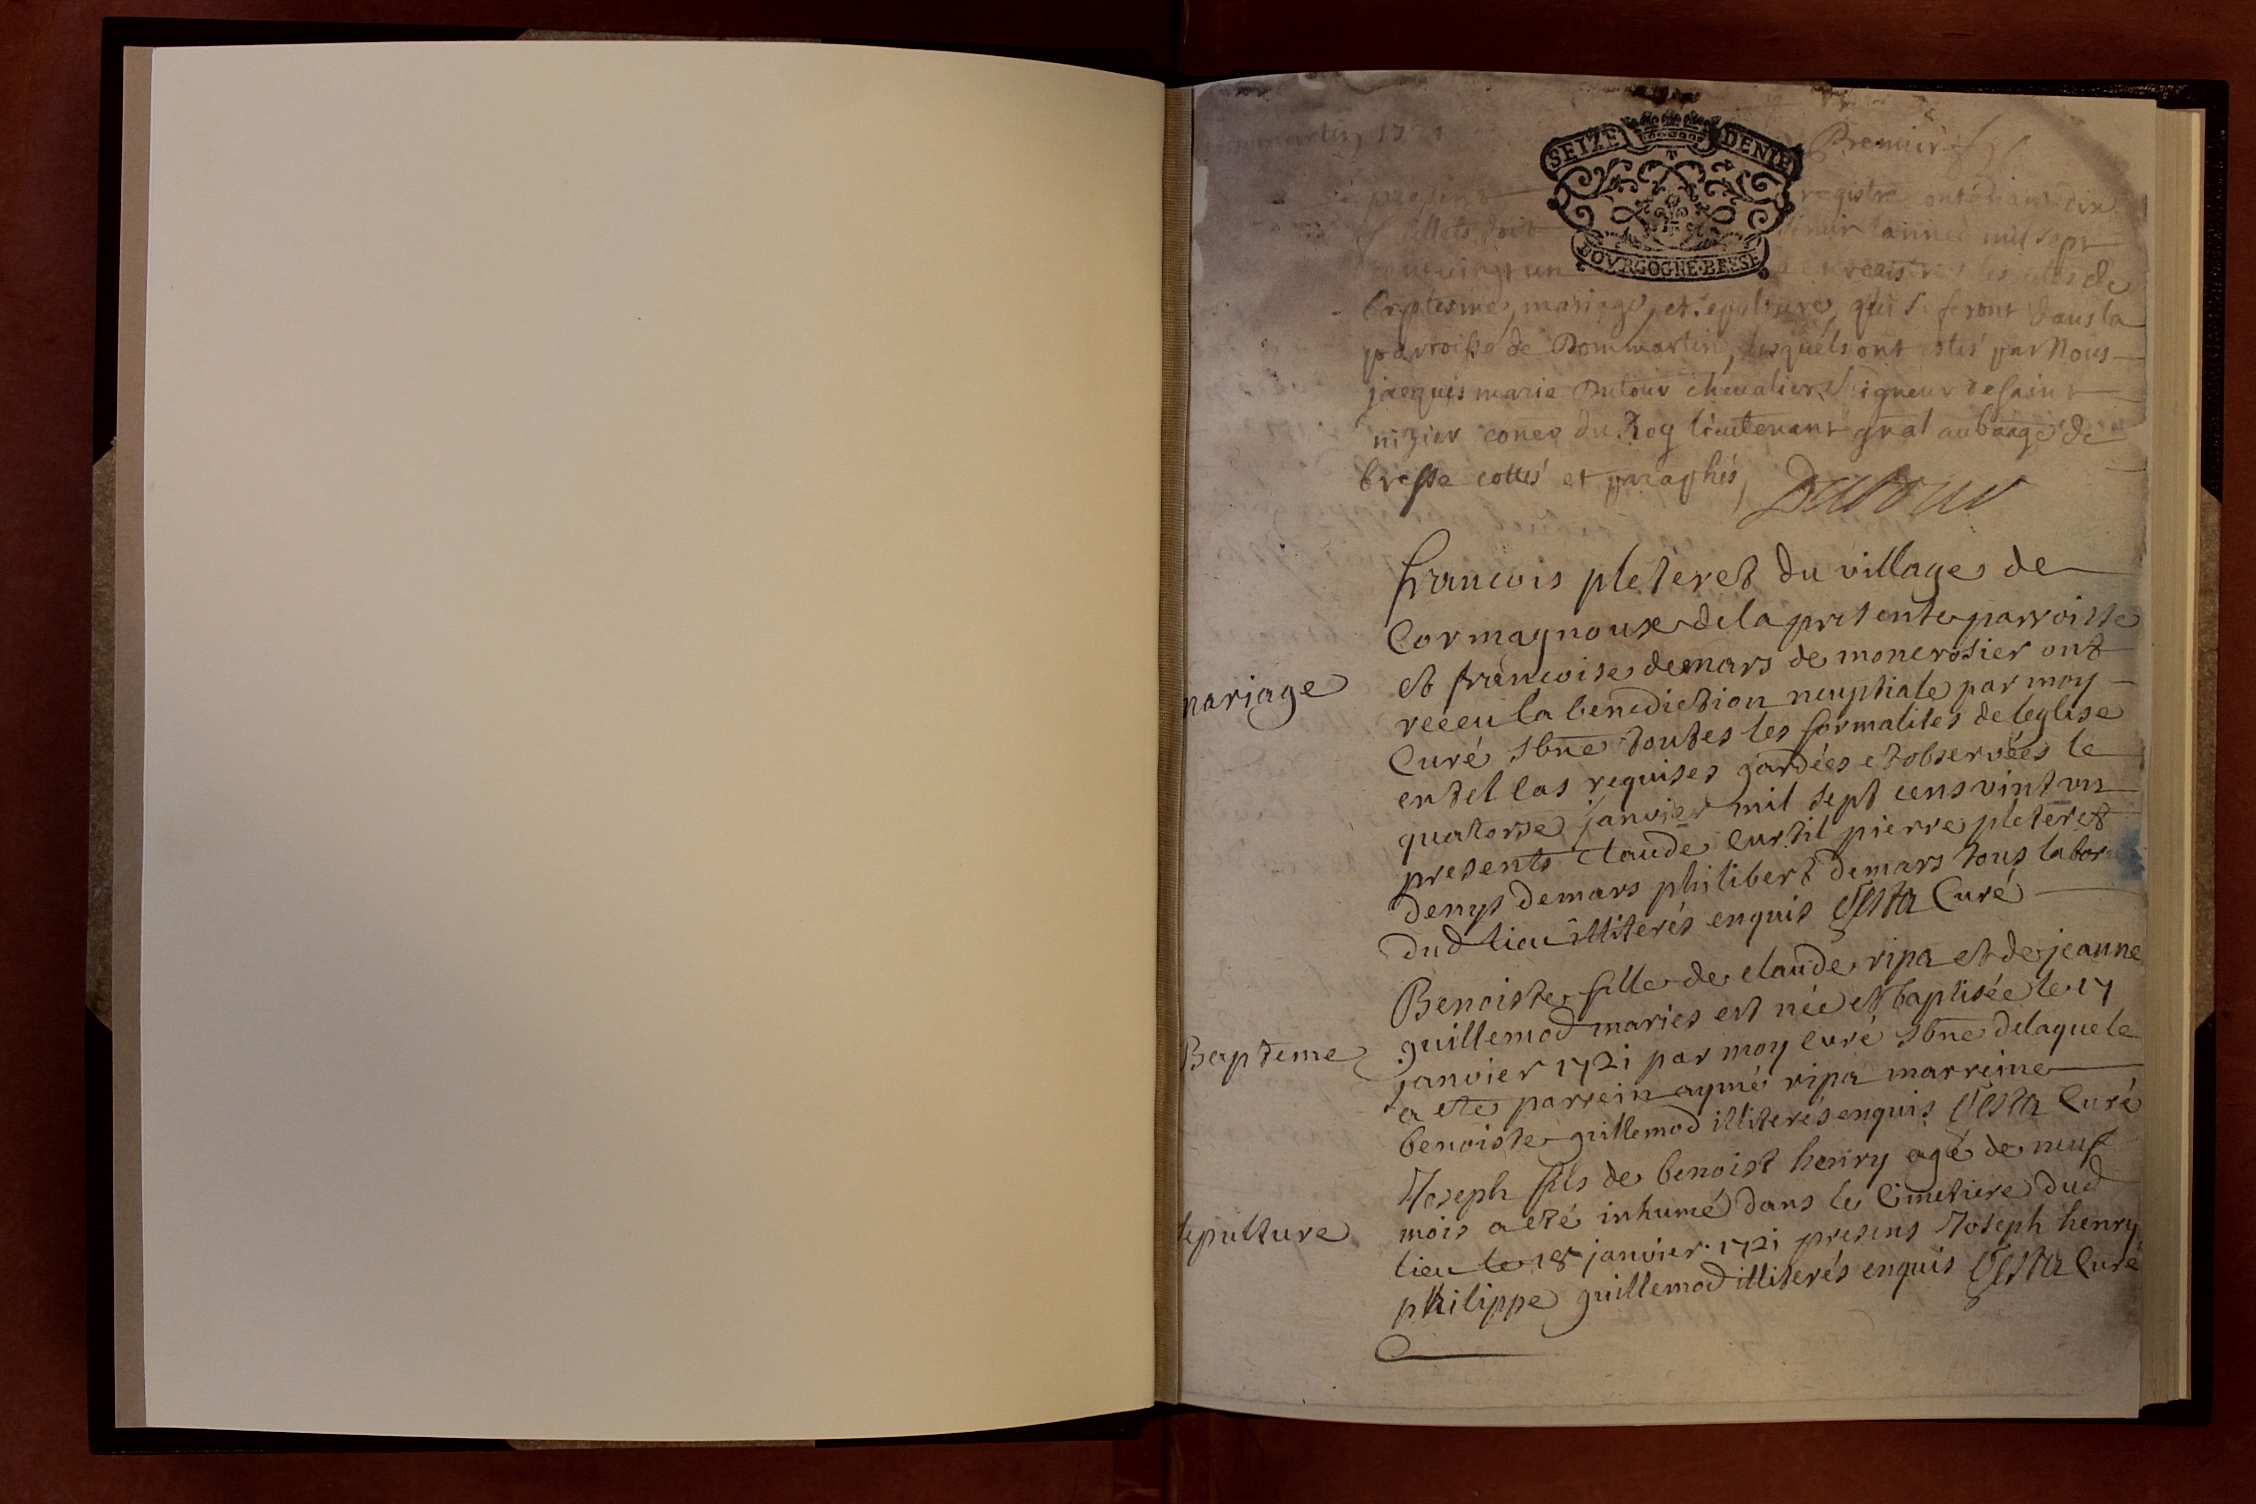 1721
Premier
SEIZE DENIE
present registre contenant dix
feillets doit année mil sept
vingt un les actes de
BOVRGOGNE·BESSE
baptesme, mariage, et sepulture, qui se feront dans la
parroisse de Dommartin, lesquels ont estés par Nous
jacques marie Dutour chevalier Seigneur de saint
nizier coner du Roy lieutenant gnal au baage de
bresse cottés et paraphés,
Dutour
francois pleteret du village de
Cormagnoux de la presente parroisse
et francoise demars de moncrosier ont
mariage
receu la benediction nuptiale par moy
Curé sbne toutes les formalités de leglise
en tel cas requises gardées et observées le
quatorse janvier mil sept cens vint un
presents Claude curtil pierre pleteret
denys demars philibert demars tous labor
dud lieu illiterés enquis Vesta Curé
Benoiste fille de claude ripa et de jeanne
guillemod mariés est née et baptisée le 17
Bapteme
janvier 1721 par moy curé sbne de laquele
a eté parrein aymé ripa marreine
benoiste guillemod illiterés enquis Vesta Curé
Joseph fils de benoist henry agé de neuf
mois a eté inhumé dans le Cimetiere dud
sepulture
lieu le 18 janvier 1721 presens Joseph henry
philippe guillemod illiterés enquis Vesta Curé